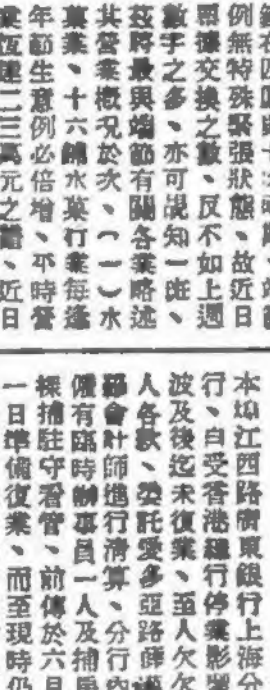 例無特殊緊張狀態、故近日
照據交換之數、反不如上週
數字之多、亦可覘知一斑、
茲將最與端節有關各業略述
其營業概况於次、（一）水
菓業、十六舖水菓行業每逢
年節生意例必倍增、平時營
業恆達二三萬元之譜、近日
本埠江西路廣東銀行上海分
行、自受香港總行停業影響
波及後迄未復業、至人欠欠
人各款、委託愛多亞路薛
會計師進行清算、分行內
僅有臨時辦事員一人及捕房
探捕駐守看管、前傳於六月
一日準備復業、而至現時仍